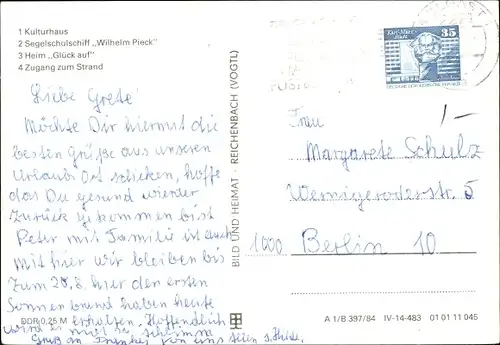 1 Kulturhaus
2 Segelschulschiff „Wilhelm Pieck"
3 Heim „Glück auf"
4 Zugang zum Strand
Liebe Grete
Möchte Dir hiermit die
besten Grüße aus unseren
Urlaubs Ort schicken, hoffe
das Du gesund wierder
zurück gekommen bist
Peter mit Familie ist auch
Mit hier wir bleiben bis
zum 20.8. hier den ersten
Sonnenbrand haben heute
wird es nicht so schlimm
erhalten. Hoffendlich
Gruß von uns allen
DDR 0,25 M
BILD UND HEIMAT · REICHENBACH (VOGTL)
Karl-Marx-
Stadt
35
1,-
Frau
Margarete Schulz
Wernigeroderstr. 5
1000 Berlin 10
A 1/B 397/84 IV-14-483 01 01 11 045